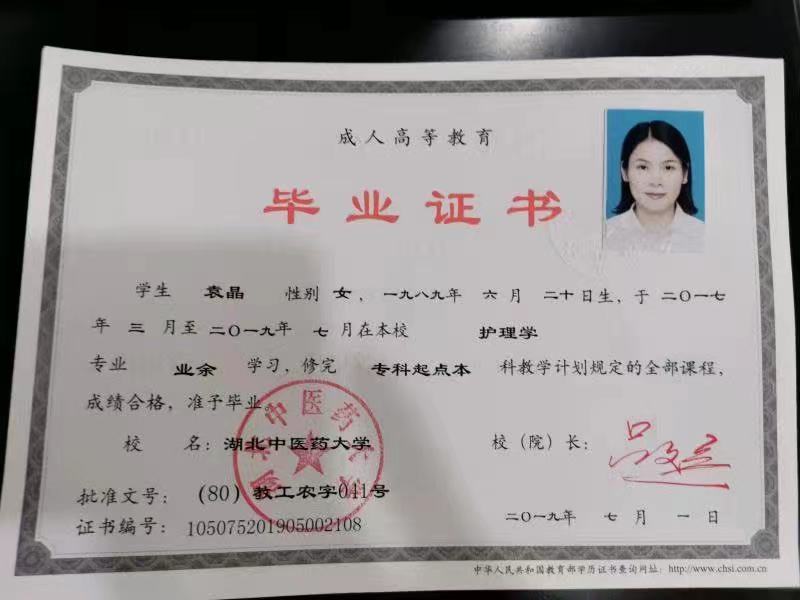 成人高等教育
毕业证书
学生 袁晶 性别 女，一九八九年 六 月 二十日生，于 二〇一七
年 三 月至 二〇一九年 七 月在本校 护理学
专业 业余 学习，修完 专科起点本 科教学计划规定的全部课程，
成绩合格，准予毕业。
校 名：湖北中医药大学 校（院）长：
批准文号：（80）教工农字041号
证书编号：105075201905002108 二〇一九年 七 月 一 日
湖北中医药大学
中华人民共和国教育部学历证书查询网址：http://www.chsi.com.cn